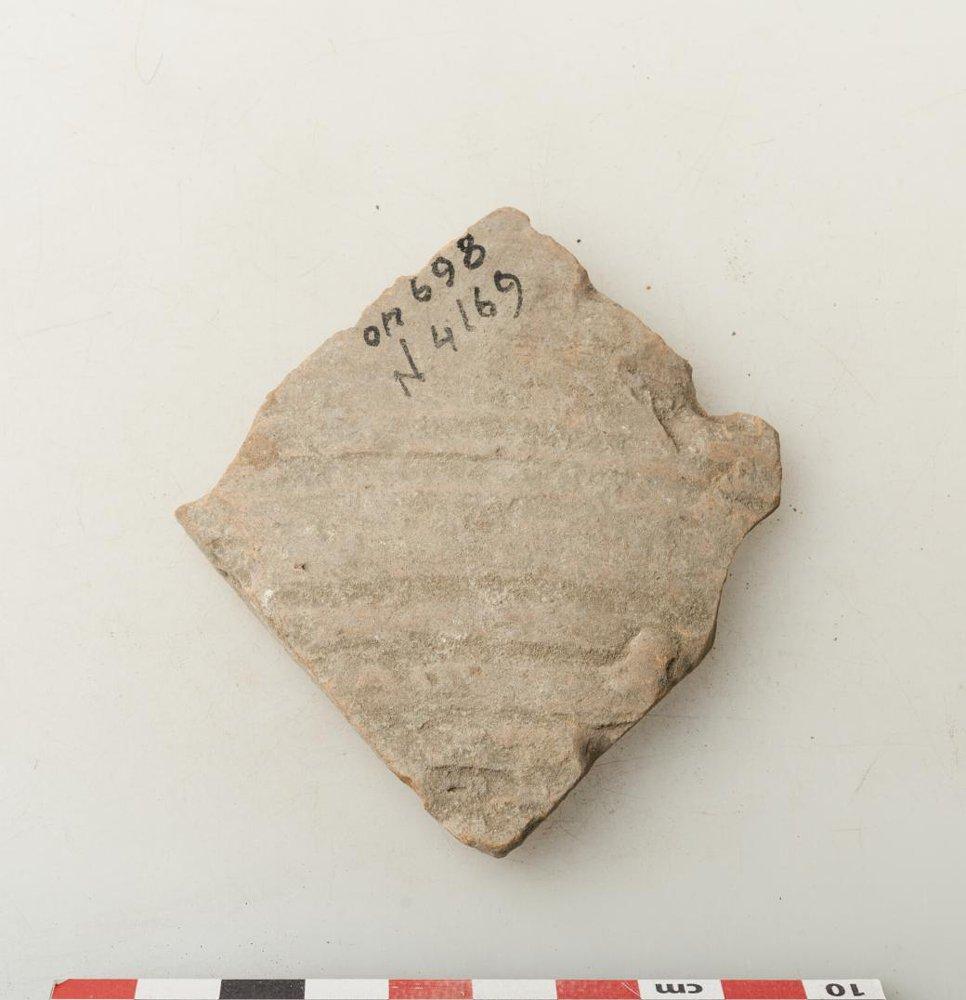 on 698
N 4169
cm 10